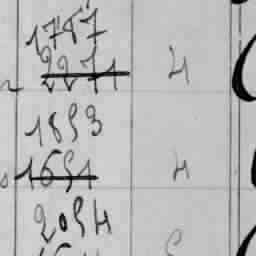 1787
2271 4
1893
1651 4
2054